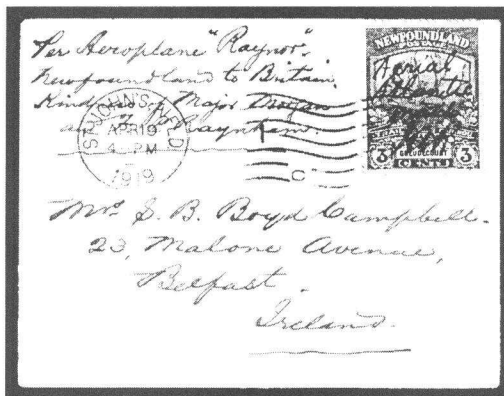 Per Aeroplane "Raynor".
Newfoundland to Britain.
Kindness of Major Morgan
and Raynham.
ST. JOHN'S NFLD
APR 19
4 PM
1919
NEWFOUNDLAND
POSTAGE
Aerial
Atlantic
Mail
GUEUDECOURT
3 CENTS 3
Mrs. E. B. Boyd Campbell.
23, Malone Avenue,
Belfast.
Ireland.